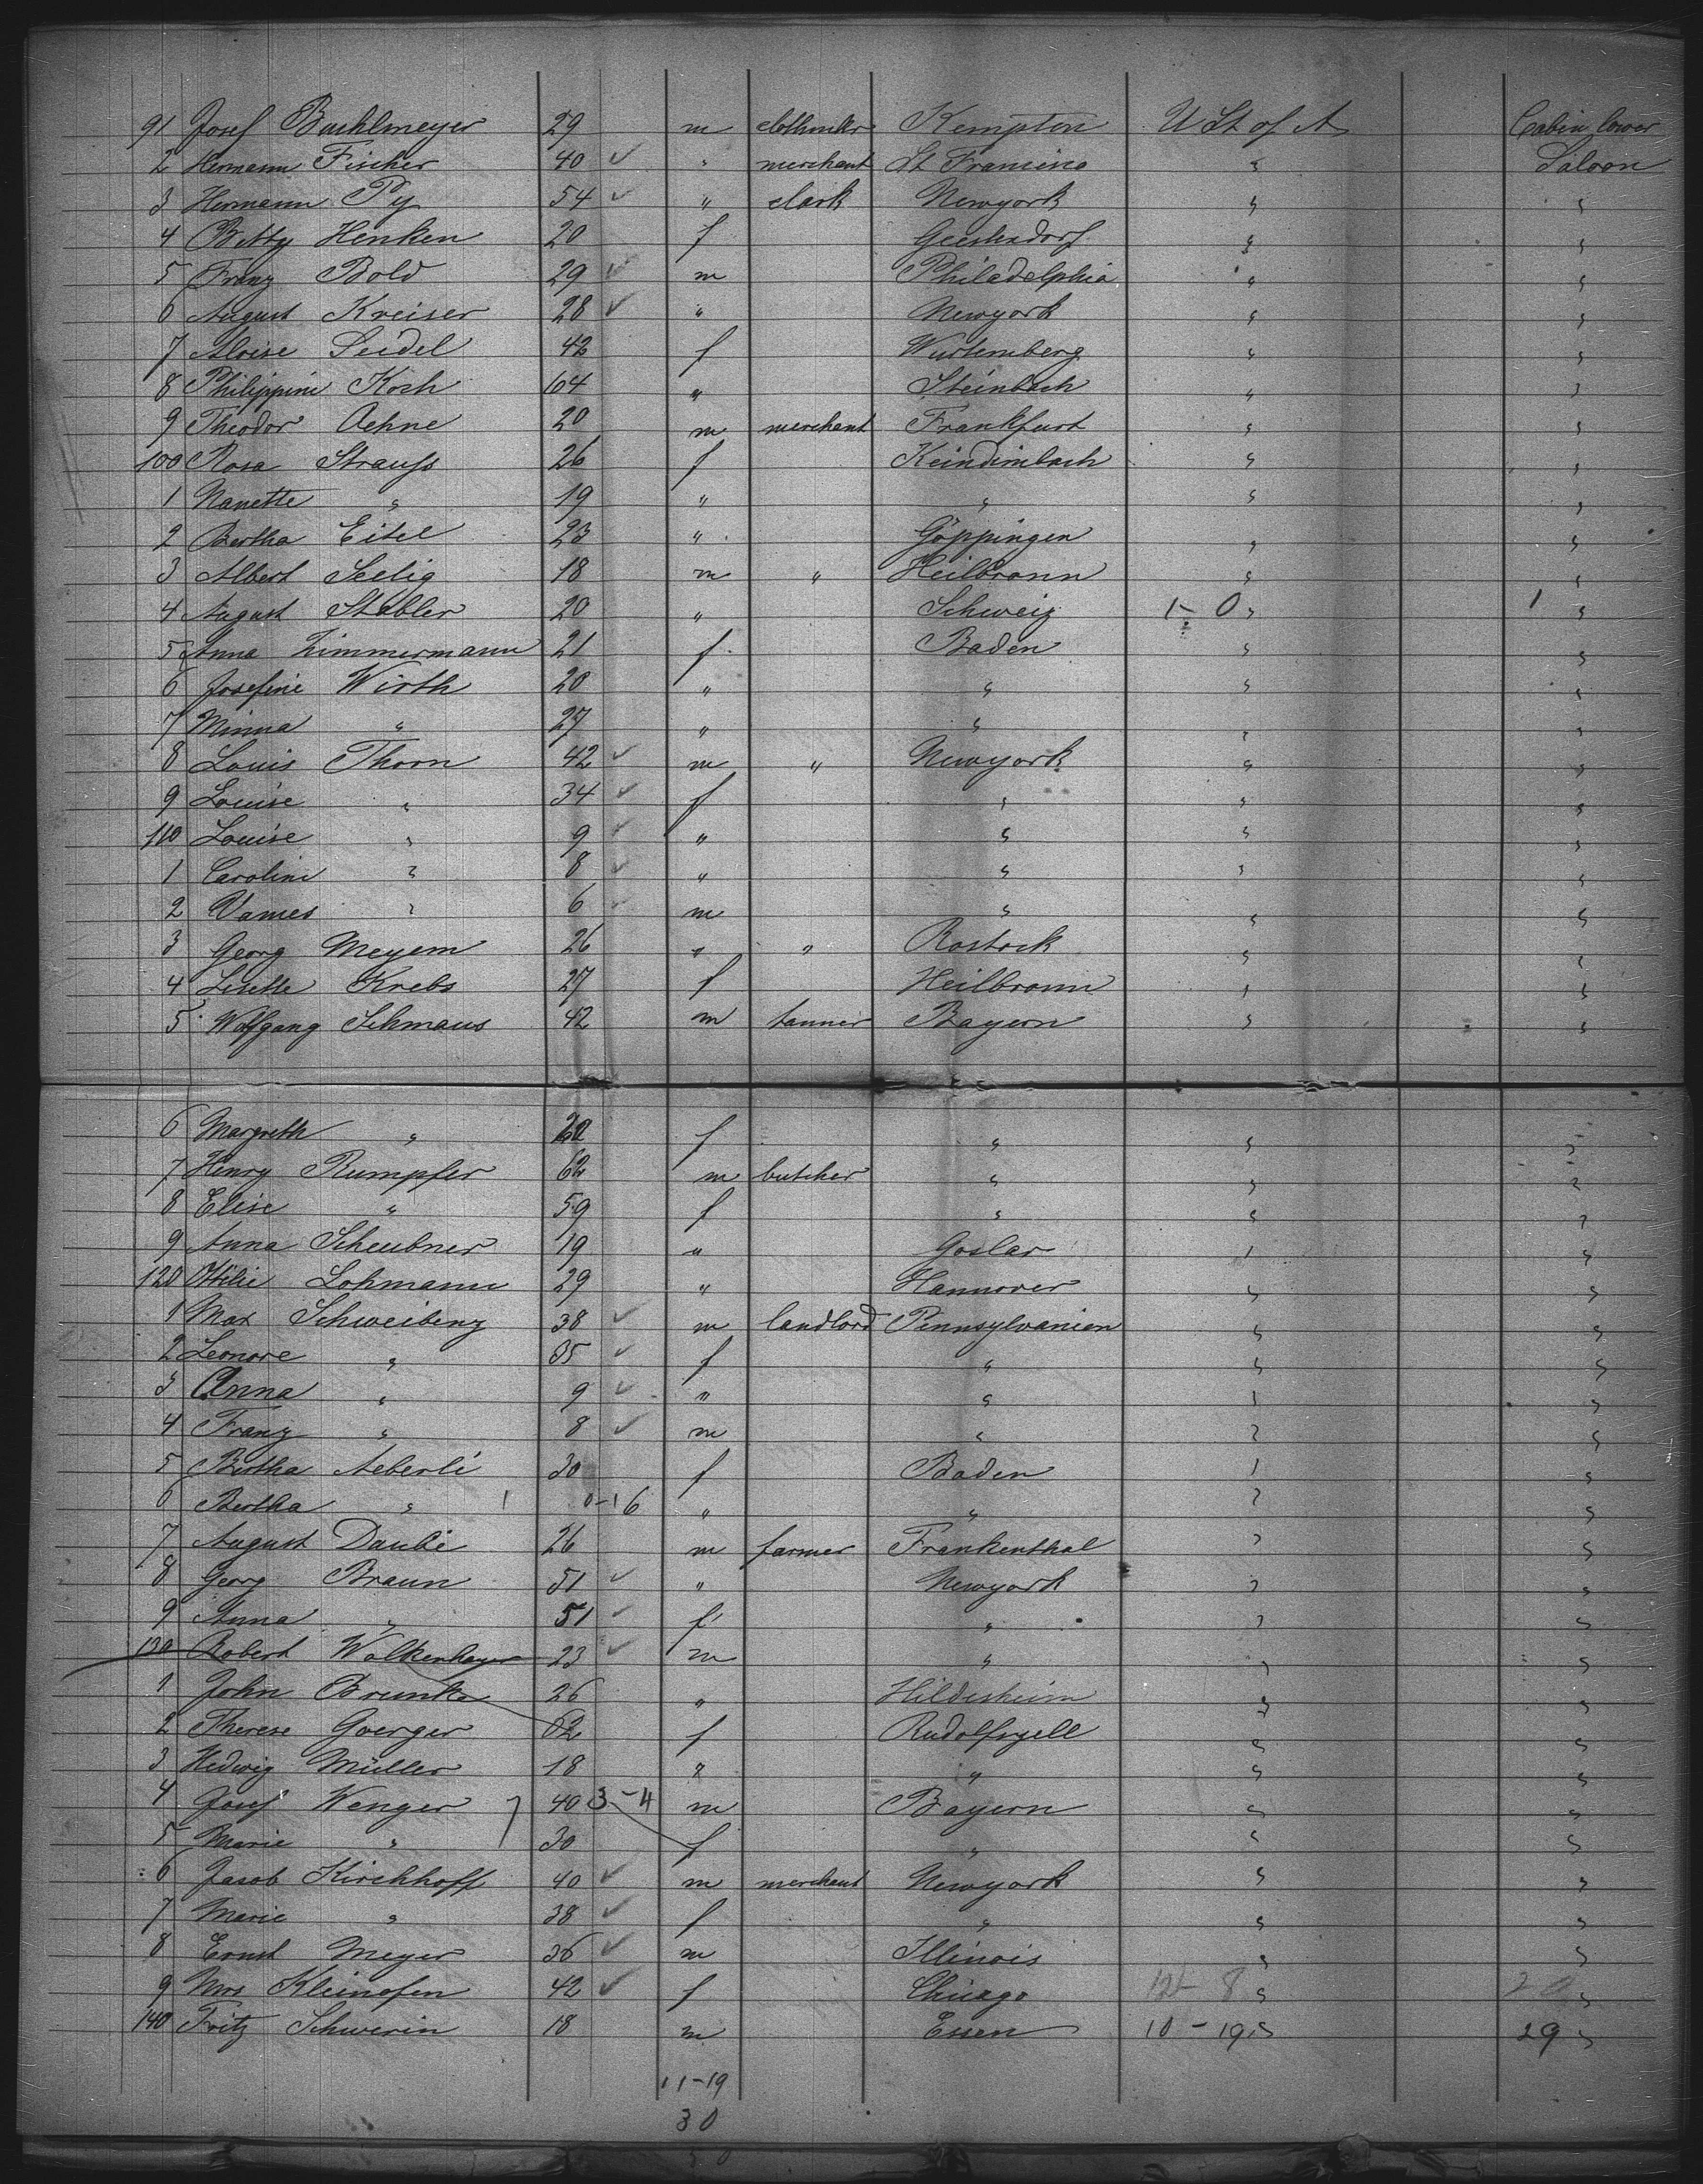 91 Josef Buchlmeyer 29 m clothmkr Kempten U St of A Cabin lower
2 Hermann Fischer 40 ✓ " merchant St Francisco " Saloon
3 Hermann Py 54 ✓ " clark Newyork " "
4 Betty Henken 20 f Geestendorf " "
5 Franz Bold 29 ✓ m Philadelphia " "
6 August Kreiser 28 ✓ " Newyork " "
7 Aloise Seidel 42 f Wurtemberg " "
8 Philippine Koch 64 " Steinbach " "
9 Theodor Oehne 20 m merchant Frankfurt " "
100 Rosa Strauss 26 f " "
1 Nanette " 19 " " " "
2 Bertha Eitel 23 " Göppingen " "
3 Albert Seelig 18 m " Heilbronn " "
4 August Stabler 20 " Schweiz 1-0 " 1 "
5 Anna Zimmermann 21 f Baden " "
6 Josefine Wirth 20 " " " "
7 Minna " 27 " " " "
8 Louis Thorn 42 ✓ m " Newyork " "
9 Louise " 34 ✓ f " " "
110 Louise " 9 ✓ " " " "
1 Caroline " 8 ✓ " " " "
2 James " 6 ✓ m " " "
3 Georg Meyem 26 " " Rostock " "
4 Lisette Krebs 27 f Heilbronn " "
5 Wolfgang Schmaus 42 m tanner Bayern " "
6 Margreth " 22 f " " "
7 Henry Rumpfer 62 m butcher " " "
8 Elise " 59 f " " "
9 Anna Scheubner 19 " Goslar " "
120 Ottilie Lohmann 29 " Hannover " "
1 Max Schweibenz 38 ✓ m landlord Pennsylvanien " "
2 Leonore " 35 ✓ f " " "
3 Anna " 9 ✓ " " " "
4 Franz " 8 ✓ m " " "
5 Bertha Aeberli 30 f Baden " "
6 Bertha " 1 0-16 " " " "
7 August Daube 26 m farmer Frankenthal " "
8 Georg Braun 51 ✓ " Newyork " "
9 Anna " 51 ✓ f " " "
130 Robert Wolkenhauer 23 ✓ m " " "
1 John Brunk 26 " Hildesheim " "
2 Therese Goerger 62 f Rudolfszell " "
3 Hedwig Müller 18 " " " "
4 Josef Wenger 40 3-4 m Bayern " "
5 Marie " 30 f " " "
6 Jacob Kirchhoff 40 ✓ m merchant Newyork " "
7 Marie " 38 ✓ f " " "
8 Ernst Meyer 36 ✓ m Illinois " "
9 Mrs Kleinofen 42 ✓ f Chicago 12-8 " 20 "
140 Fritz Schwerin 18 m Essen 10-19 " 29 "
11-19
30